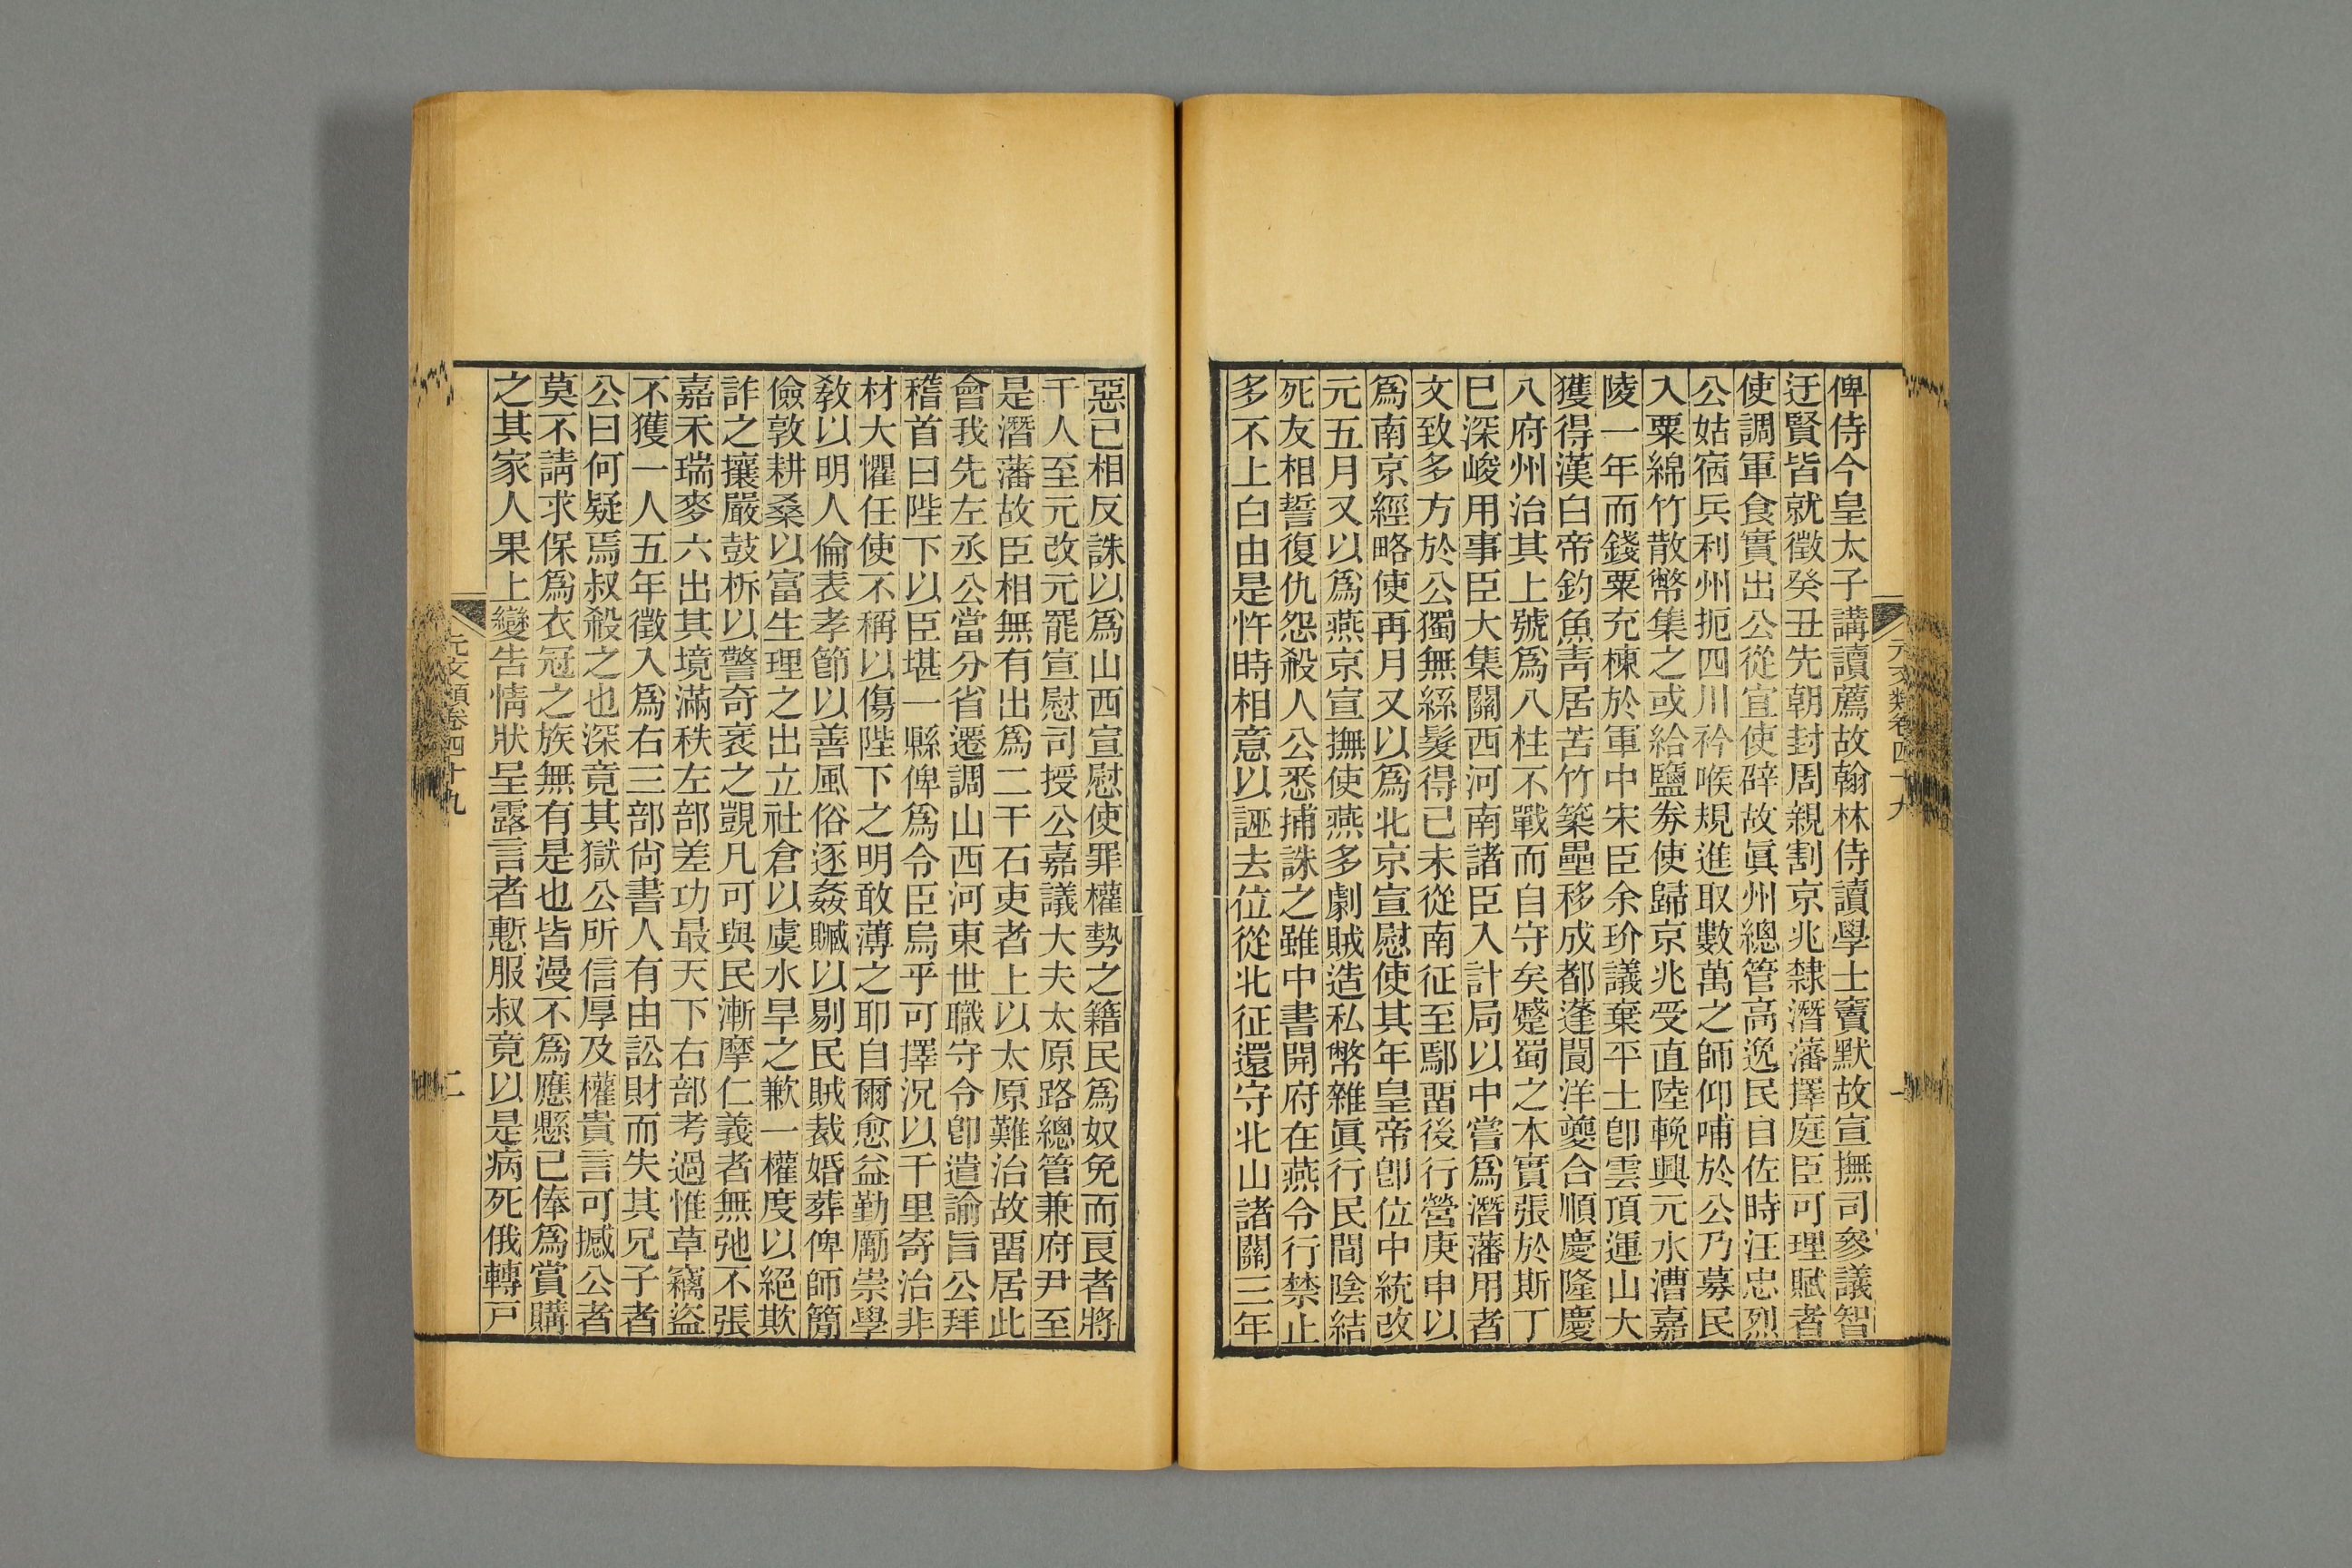 元文類卷四十九
一
俾侍今皇太子講讀薦故翰林侍讀學士竇默故宣撫司參議智
迂賢皆就徵癸丑先朝封周親割京兆隸潛藩擇庭臣可理賦者
使調軍食實出公從宜使辟故眞州總管高逸民自佐時汪忠烈
公姑宿兵利州扼四川衿喉規進取數萬之師仰哺於公乃募民
入粟綿竹散幣集之或給鹽劵使歸京兆受直陸輓興元水漕嘉
陵一年而錢粟充棟於軍中宋臣余玠議棄平土卽雲頂運山大
獲得漢白帝釣魚靑居苦竹築壘移成都蓬閬洋夔合順慶隆慶
八府州治其上號爲八柱不戰而自守矣蹙蜀之本實張於斯丁
巳深峻用事臣大集關西河南諸臣入計局以中嘗爲潛藩用者
文致多方於公獨無絲髮得已未從南征至鄢畱後行營庚申以
爲南京經略使再月又以爲北京宣慰使其年皇帝卽位中統改
元五月又以爲燕京宣撫使燕多劇賊造私幣雜眞行民間陰結
死友相誓復仇怨殺人公悉捕誅之雖中書開府在燕令行禁止
多不上白由是忤時相意以誣去位從北征還守北山諸關三年
惡已相反誅以爲山西宣慰使罪權勢之籍民爲奴免而良者將
千人至元改元罷宣慰司授公嘉議大夫太原路總管兼府尹至
是潛藩故臣相無有出爲二千石吏者上以太原難治故畱居此
會我先左丞公當分省遷調山西河東世職守令卽遣諭旨公拜
稽首曰陛下以臣堪一縣俾爲令臣烏乎可擇況以千里寄治非
材大懼任使不稱以傷陛下之明敢薄之耶自爾愈益勤勵崇學
敎以明人倫表孝節以善風俗逐姦贓以剔民賊裁婚葬俾師簡
儉敦耕桑以富生理之出立社倉以虞水旱之歉一權度以絕欺
詐之攘嚴鼓柝以警奇衺之覬凡可與民漸摩仁義者無弛不張
嘉禾瑞麥六出其境滿秩左部差功最天下右部考過惟草竊盜
不獲一人五年徵入爲右三部尙書人有由訟財而失其兄子者
公曰何疑焉叔殺之也深竟其獄公所信厚及權貴言可撼公者
莫不請求保爲衣冠之族無有是也皆漫不爲應懸已俸爲賞購
之其家人果上變吿情狀呈露言者慙服叔竟以是病死俄轉戸
元文類卷四十九
二